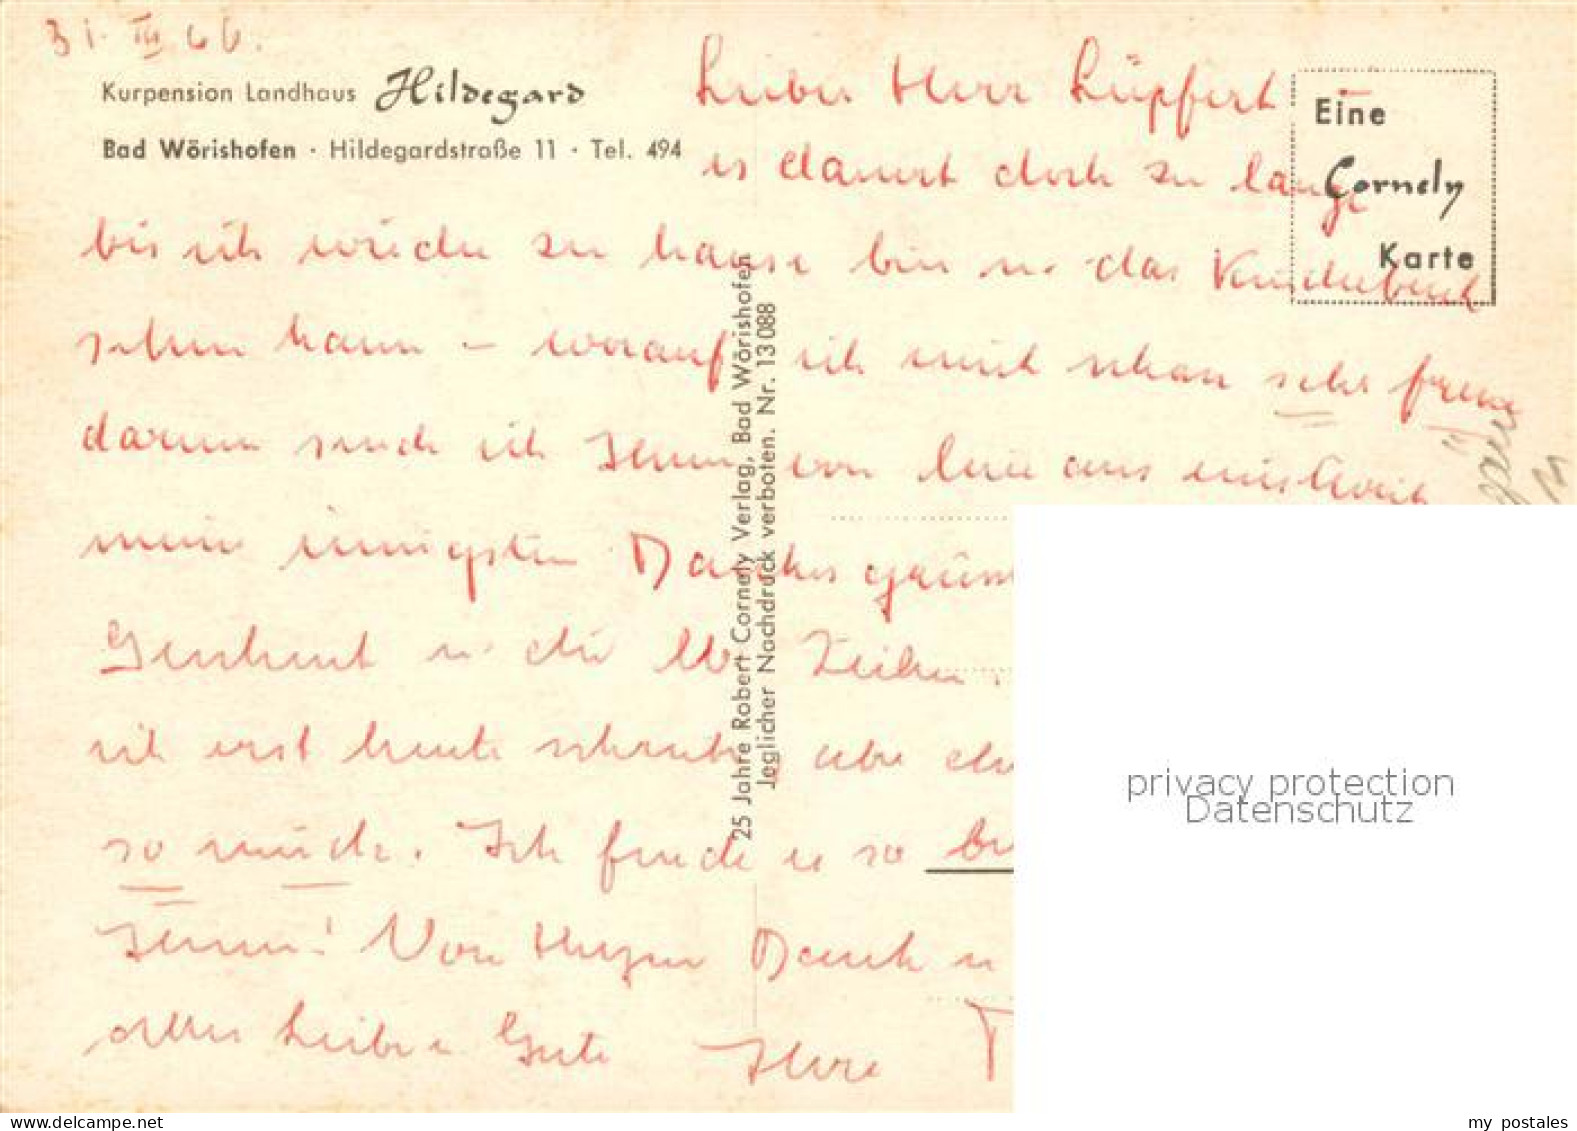 31. III 66.
Kurpension Landhaus Hildegard
Bad Wörishofen · Hildegardstraße 11 · Tel. 494
Eine
Cornely
Karte
Lieber Herr Lüpfert
es dauert doch zu lange
bis ich wieder zu hause bin u. das
sehen kann – worauf ich mich schon sehr freue
darum sende ich Ihnen von hier aus
meine innigsten
Geschenk u. die lb. Zeilen.
ich erst heute schreibe aber
so müde. Ich finde es so
Ihnen! Von Herzen Dank u
alles Liebe u Gute Ihre
25 Jahre Robert Cornely Verlag, Bad Wörishofen
Jeglicher Nachdruck verboten. Nr. 13 088
privacy protection
Datenschutz
my postales